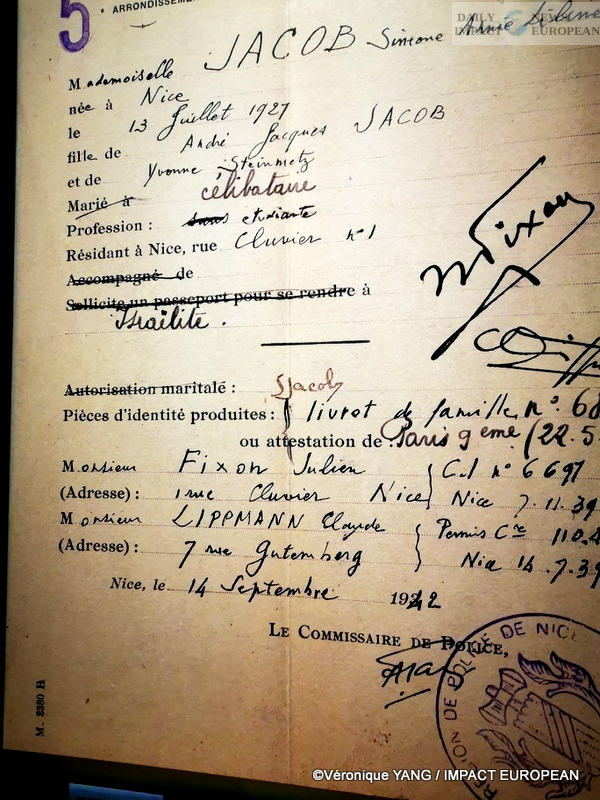 5e ARRONDISSEMENT
DAILY IMPACT NEWS EUROPEAN
Mademoiselle JACOB Simone Annie Liline
née à Nice
le 13 Juillet 1927
fille de André Jacques JACOB
et de Yvonne Steinmetz
Marié à célibataire
Profession : sans etudiante
Résidant à Nice, rue Cluvier n° 1
Accompagné de
Sollicite un passeport pour se rendre à
Israëlite.
Fixon
Autorisation maritale : SJacob
Pièces d'identité produites : livret de famille n° 68
ou attestation de Paris 9 eme (22.5
Monsieur Fixon Julien C.I n° 6697
(Adresse) : 1 rue Cluvier Nice Nice 7.11.39
Monsieur LIPPMANN Claude Permis Cre 110.4
(Adresse) : 7 rue Gutemberg Nice 14.7.39
Nice, le 14 Septembre 1942
LE COMMISSAIRE DE POLICE,
DE POLICE DE NICE
M. 2380 H
©Véronique YANG / IMPACT EUROPEAN